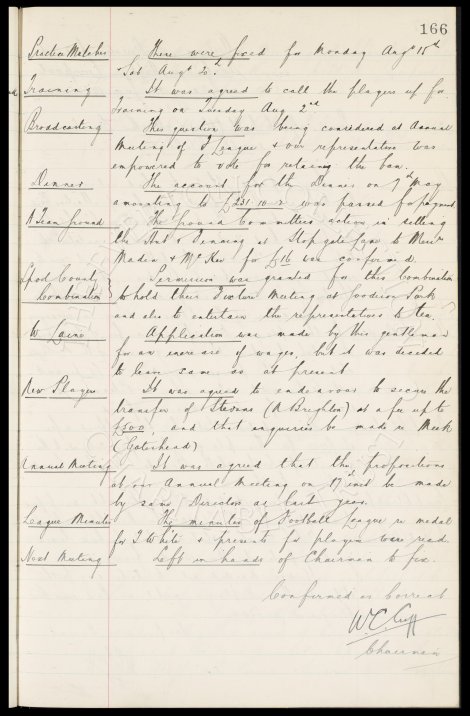 166
Practice Matches There were fixed for Monday Augt 15th
& Sat Augt 20th
Training It was agreed to call the players up for
Training on Tuesday Aug 2nd
Broadcasting This question was being considered at Annual
Meeting of F League & our representative was
empowered to vote for retaining the ban.
Dinner The account for the Dinner on 7th May
amounting to £231-10-2 was passed for payment
A Team Ground The Ground Committees action in letting
the & Fencing at Stopgate Lane to Messrs
Maden & McKee for £16 was confirmed.
Lpool County Permission was granted for this Combination
Combination to hold their Fixture Meeting at Goodison Park
and also to entertain the representatives to tea.
W Laine Application was made by this gentleman
for an increase of wages, but it was decided
to leave same as at present
New Players It was agreed to endeavour to secure the
transfer of Stevens (N Brighton) at a fee up to
£500 and that enquiries be made re Meek
(Gateshead)
Annual Meeting It was agreed that the propositions
at our Annual Meeting on 17 inst be made
by same Directors as last year.
League Minutes The minutes of Football League re medal
for T White & presents for players were read.
Next Meeting Left in hands of Chairman to fix.
Confirmed as Correct
W.C. Cuff
Chairman